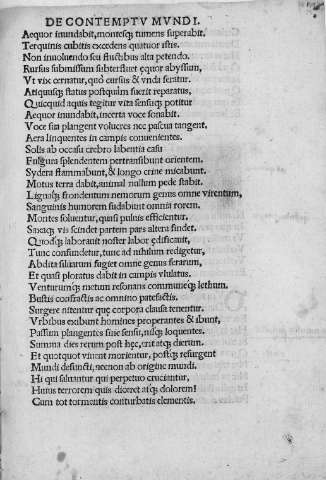 DE CONTEMPTV MVNDI.
Aequor inundabit, montesq; tumens superabit,
Terquinis cubitis excedens quatuor istis.
Non inuoluendo sed fluctibus alta petendo.
Rursus submissum subterfluet ęquor abyssum,
Vt vix cernatur, quo cursus & vnda feratur.
Antiquusq; status postquàm fuerit reparatus,
Quicquid aquis tegitur vita sensusq; potitur
Aequor inundabit, incerta voce sonabit.
Voce sua plangent volucres nec pascua tangent,
Aera linquentes in campis conuenientes.
Solis ab occasu crebro labentia casu
Fulgura splendentem pertransibunt orientem.
Sydera flammabunt, & longo crine micabunt.
Motus terra dabit, animal nullum pede stabit.
Lignaq; frondentum nemorum genus omne virentum,
Sanguinis humorem sudabunt omnia rorem.
Montes soluentur, quasi puluis efficientur.
Saxaq; vis scindet partem pars altera findet.
Quodq; laborauit noster labor ędificauit,
Tunc confundetur, tunc ad nihilum redigetur,
Abdita siluarum fugiet omne genus ferarum,
Et quasi ploratus dabit in campis vlulatus.
Venturumq; metum resonans communeq; lethum.
Bustis confractis ac omnino patefactis.
Surgere nitentur quę corpora clausa tenentur.
Vrbibus exibunt homines properantes & ibunt,
Passim plangentes sine sensu, nilq; loquentes.
Summa dies rerum post hęc, erit atq; dierum.
Et quotquot viuent morientur, postq; resurgent
Mundi defuncti, necnon ab origine mundi.
Hi qui saluantur qui perpetuo cruciantur,
Huius terrorem quis diceret atq; dolorem!
Cum tot tormentis conturbatis elementis.